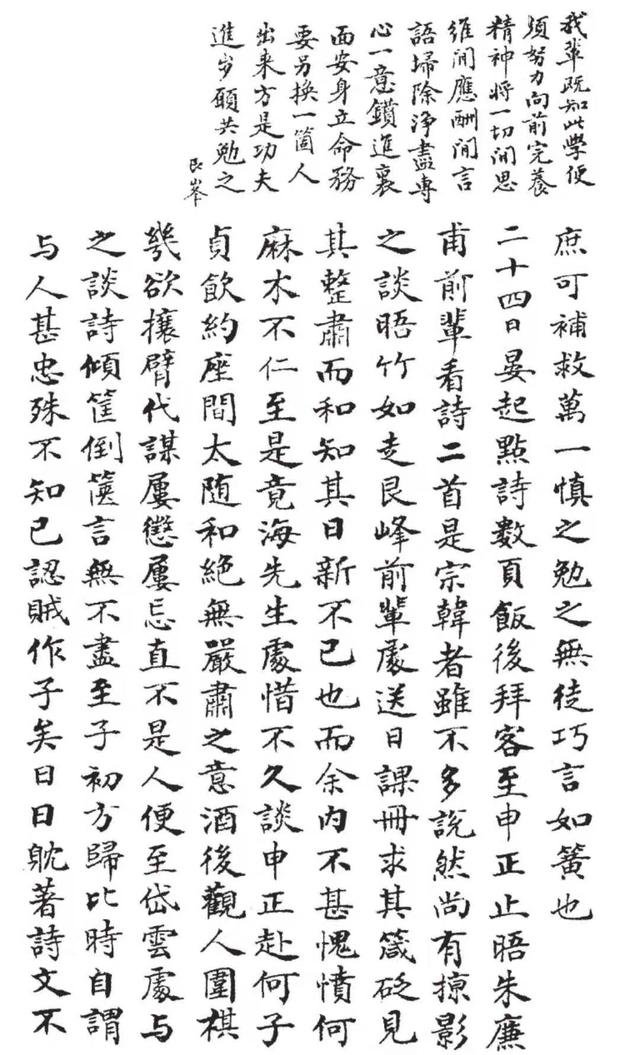 我輩既知此學便
須努力向前完養
精神將一切閒思
維閒應酬閒言
語埽除淨盡專
心一意鑽進裏
面安身立命務
要另換一箇人
出来方是功夫
進步願共勉之
艮峯
庶可補救萬一慎之勉之無徒巧言如簧也
二十四日晏起點詩數頁飯後拜客至申正止晤朱廉
甫前輩看詩二首是宗韓者雖不多說然尚有掠影
之談晤竹如走艮峰前輩處送日課冊求其箴砭見
其整肅而和知其日新不已也而余内不甚愧憤何
麻木不仁至是竟海先生處惜不久談申正赴何子
貞飲約座間太随和絕無嚴肅之意酒後觀人圍棋
幾欲攘臂代謀屢懲屢忘直不是人便至岱雲處与
之談詩傾筐倒篋言無不盡至子初方歸比時自謂
与人甚忠殊不知已認賊作子矣日日躭著詩文不